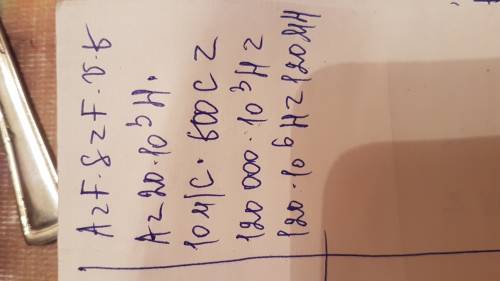 A=F·S=F·v·t
A=20·10³H·
10м/с·600с=
120000·10³H=
120·10⁶H=120МН